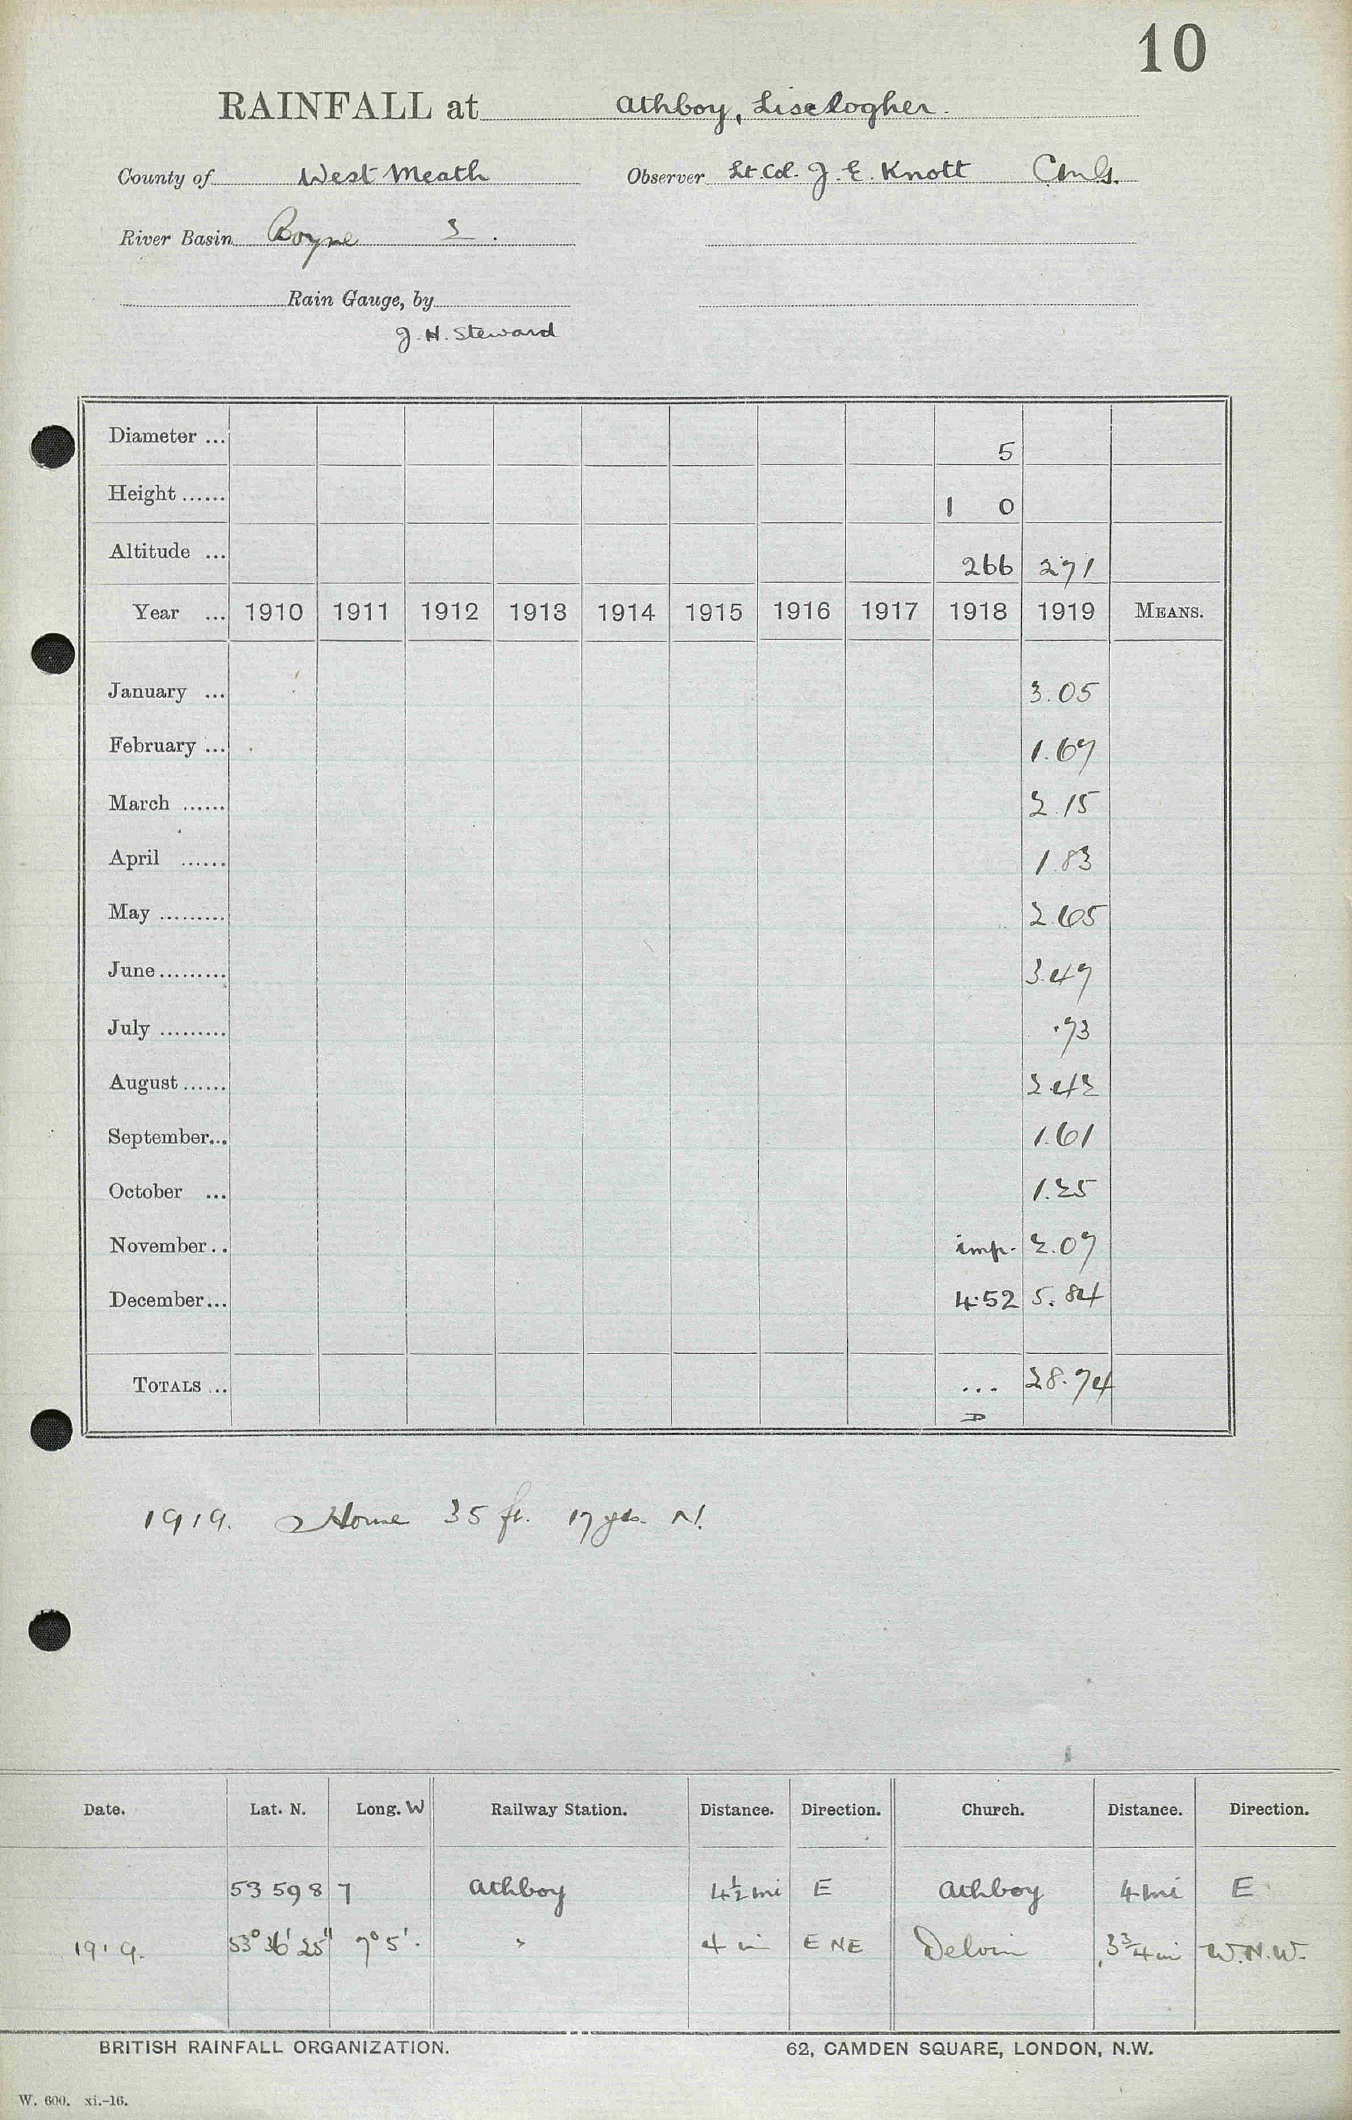 10
RAINFALL at Athboy, Lisclogher.
County of West Meath Observer Lt. Col. J. E. Knott C.M.G.
River Basin Boyne 2.
Rain Gauge, by
J. H. Steward
Diameter ... 5
Height ...... 1 0
Altitude ... 266 271
Year ... 1910 1911 1912 1913 1914 1915 1916 1917 1918 1919 MEANS.
January ... 3.05
February ... 1.67
March ...... 2.15
April ...... 1.83
May ......... 2.65
June ......... 3.47
July ......... .73
August ...... 2.42
September... 1.61
October ... 1.25
November.. imp. 2.07
December... 4.52 5.84
TOTALS ... ... 28.74
D
1919. House 35 ft. 17 yds. N.
Date. Lat. N. Long. W Railway Station. Distance. Direction. Church. Distance. Direction.
53 59 8 7 Athboy 4½ mi E Athboy 4 mi E
1919. 53° 36' 25" 7° 5'. " 4 m ENE Delvin 3¾ m W.N.W.
BRITISH RAINFALL ORGANIZATION. 62, CAMDEN SQUARE, LONDON, N.W.
W. 600. xi.-16.